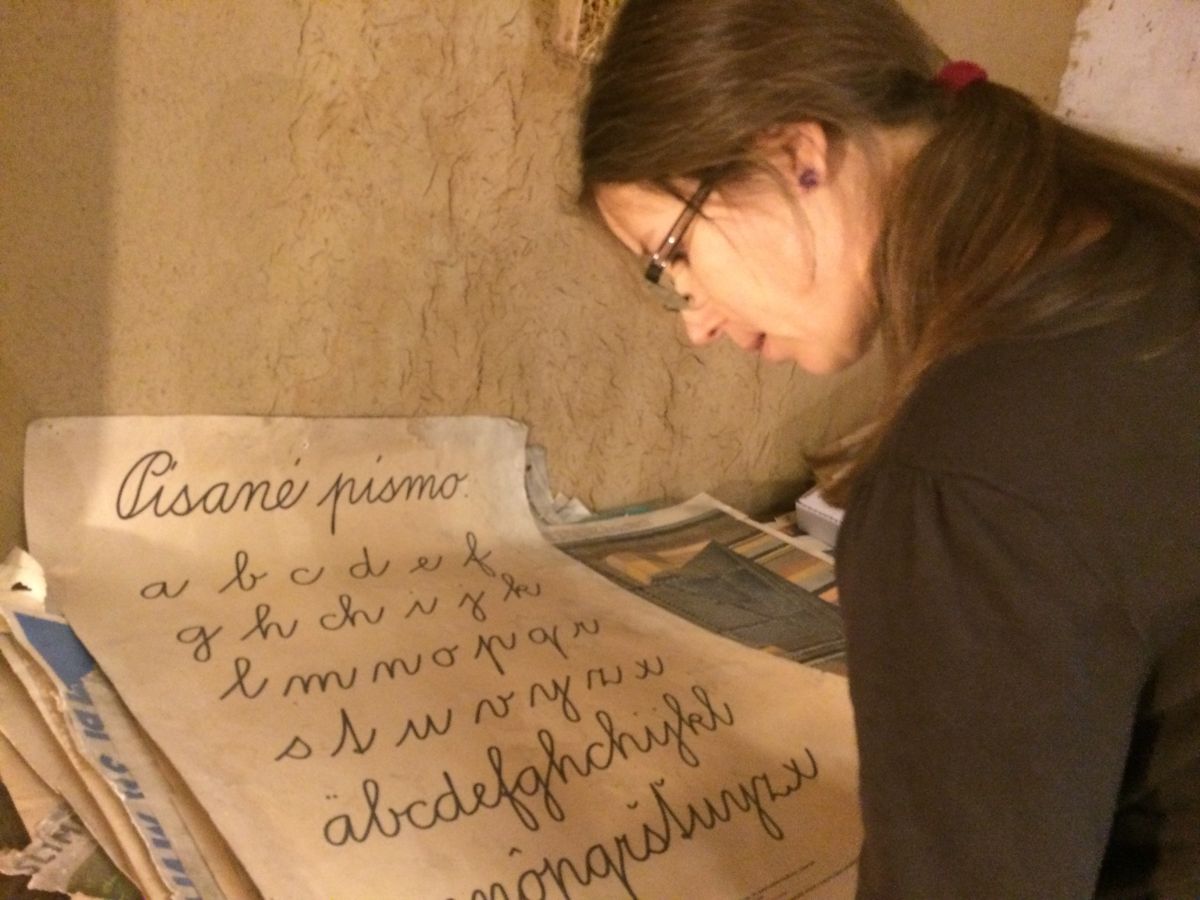 Písané písmo.
a b c d e f
g h ch i j k
l m n o p q r
s t u v y z x
äbcdefghchijkl
nôpqrštuvyzx